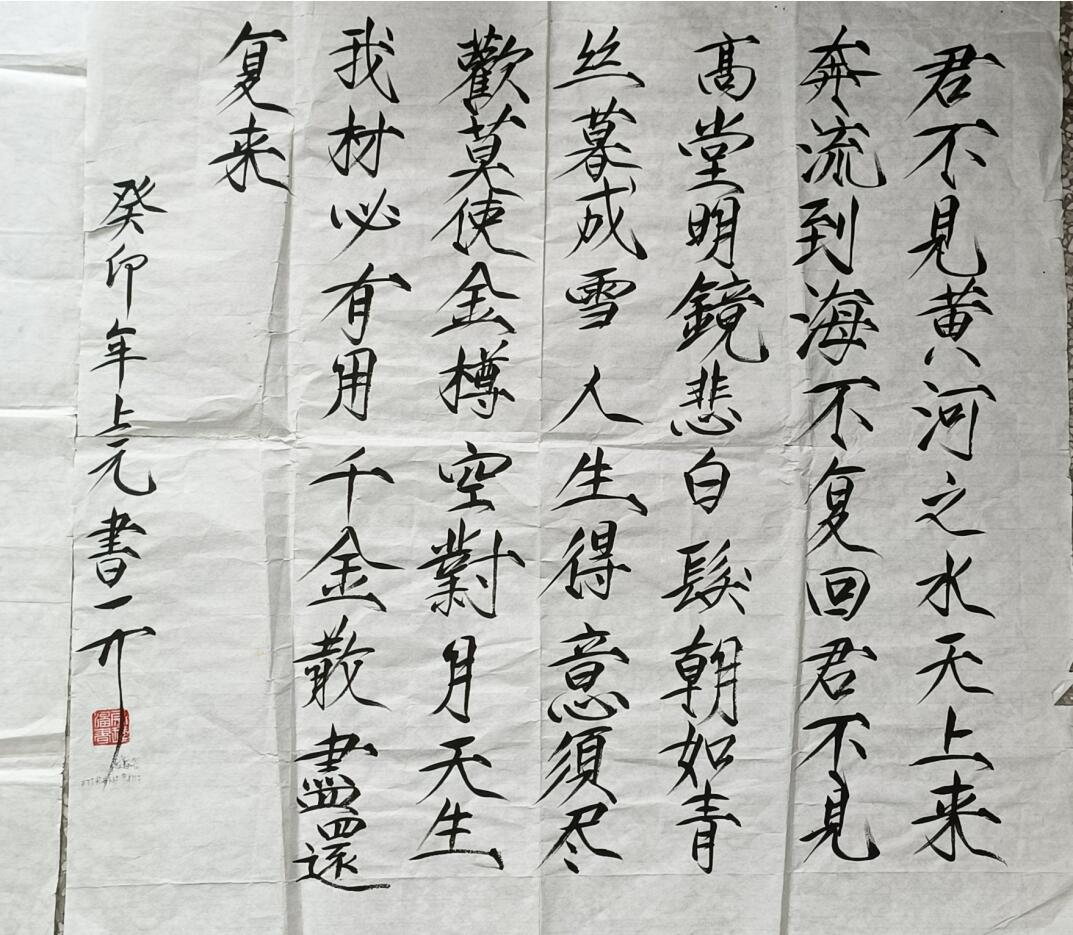 君不見黄河之水天上来
奔流到海不复回君不見
高堂明鏡悲白髮朝如青
丝暮成雪人生得意須尽
歡莫使金樽空對月天生
我材必有用千金散盡還
复来
癸卯年上元書一